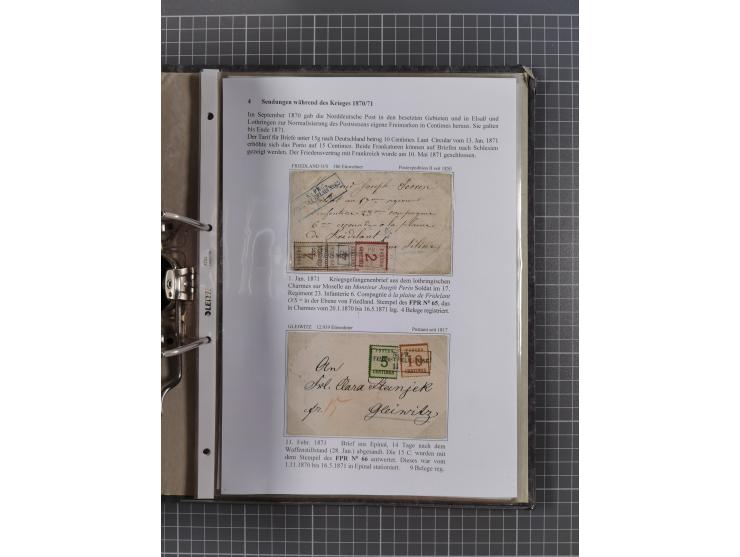 4 Sendungen während des Krieges 1870/71
Im September 1870 gab die Norddeutsche Post in den besetzten Gebieten und in Elsaß und
Lothringen zur Normalisierung des Postwesens eigene Freimarken in Centimes heraus. Sie galten
bis Ende 1871.
Der Tarif für Briefe unter 15g nach Deutschland betrug 10 Centimes. Laut Circular vom 13. Jan. 1871
erhöhte sich das Porto auf 15 Centimes. Beide Frankaturen können auf Briefen nach Schlesien
gezeigt werden. Der Friedensvertrag mit Frankreich wurde am 10. Mai 1871 geschlossen.
FRIEDLAND O/S Einwohner Postexpedition II seit 1850
Joseph
4 4 2
1. Jan. 1871 Kriegsgefangenenbrief aus dem lothringischen
Charmes sur Moselle an Monsieur Joseph Perin Soldat im 17.
Regiment 23. Infanterie 6. Compagnie á la plaine de Fridelant
O/S = in der Ebene von Friedland. Stempel des FPR Nº 65, das
in Charmes vom 20.1.1870 bis 16.5.1871 lag. 4 Belege registriert.
GLEIWITZ 12.939 Einwohner Postamt seit 1817
POSTES POSTES
5 10
CENTIMES CENTIMES
An
Frl. Clara Stanjek
fr. Gleiwitz
11. Febr. 1871 Brief aus Epinal, 14 Tage nach dem
Waffenstillstand (28. Jan.) abgesandt. Die 15 C. wurden mit
dem Stempel des FPR Nº 66 entwertet. Dieses war vom
1.11.1870 bis 16.5.1871 in Epinal stationiert. 9 Belege reg.
LEITZ